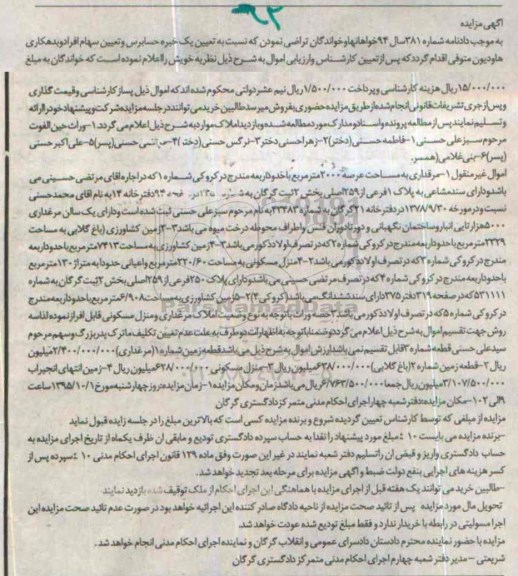 آگهی مزایده
به موجب دادنامه شماره ۳۸۱سال ۹۴خواهانهاوخواندگان تراضی نمودن که نسبت به تعیین یک خبره حسابرس وتعیین سهام افرادوبدهکاری
هاودیون متوفی اقدام گرددکه پس ازتعیین کارشناس وارزیابی اموال به شرح ذیل نظریه خویش رااعلام نموده است که خواندگان به مبلغ
۱۵/۰۰۰/۰۰۰ریال هزینه کارشناسی وپرداخت ۱/۵۰۰/۰۰۰ ریال نیم عشردولتی محکوم شده اندکه اموال ذیل پساز کارشناسی وقیمت گذاری
وپس ازجری تشریفات قانونی انجام شده ازطریق مزایده حضوری بفروش میرسدطالبین خریدمی توانند درجلسه مزایده شرکت وپیشنهادخودراارائه
وتسلیم نمایندپس از مطالعه پرونده واسنادومدارک موردمطالعه شده وبازدیداملاک مواردبه شرح ذیل اعلام می گردد۱-وراث حین الفوت
مرحوم سیزعلی حسنی ۱-فاطمه حسنی(دختر)۲-زهراحسنی دختر۳-نرگس حسنی (دختر)۴- حسنی (پسر)۵-علی اکبرحسنی
(پسر)۶- غلامی(همسر.
اموال غیرمنقول ۱-مرغداری به مساحت عرصه ۲۰۰۰مترمربع باحدوداربعه مندرج درکروکی شماره ۱ که دراجاره اقای مرتضی حسینی می
باشدودارای سندمشاعی به پلاک ۱فرعی از۲۵۹اصلی بخش ۲ثبت گرگان به دفترخانه ۱۴به نام اقای محمدحسنی
نسبت ودرمورخه ۱۳۷۸/۹/۳۰ دردفترخانه ۱۲گرگان به شماره ۳۳۳۸۳به نام مرحوم سبزعلی حسنی ثبت شده است ودارای یک سالن مرغداری
۵۰۰۰هزارتایی انباروساختمان نگهبانی ودورتادوران فنس واطراف محوطه درخت میوه می باشد۲-۳زمین کشاورزی (باغ کلایی به مساحت
۲۳۲۹مترمربع باحدوداربعه مندرج درکروکی شماره ۲که درتصرف اولاد ذکورمی باشد۳-۴زمین کشاورزی به مساحت ۷۴۱۳مترمربع باحدوداربعه
مندرج درکروکی شماره ۳که درتصرف اولاد ذکورمی باشد۲-۴منزل مسکونی به مساحت ۲۲۰/۶۰مترمربع واعیانی حدودابه متراژ۱۳۰مترمربع
باحدوداربعه مندرج درکروکی شماره ۴که درتصرف مرتضی حسینی می باشدودارای پلاک ۲۵۰فرعی از۲۵۹اصلی بخش ۲ثبت گرگان به شماره
۵۳۱۱۱۱که درصفحه ۳۱۹دفتر۳۷۵دارای سندششدانگ می باشد(کروکی ۴)۲-۵زمین کشاورزی به مساحت ۶/۹۰۸مترمربع باحدوداربعه مندرج
درکروکی شماره ۵که درتصرف اولادذکورمی باشد۳حصه وراث باتوجه به نوع وموقعیت املاک مرغداری ومنزل مسکونی قابل افرازنبوده لذاسه
روش جهت تقسیم اموال به شرح ذیل اعلام می گرددوضمناباتوجه به اظهارات دوطرف به علت عدم تعیین تکلیف ماترک پدربزرگ وسهم مرحوم
سیدعلی حسنی قطعه شماره ۳قابل تقسیم نمی باشدارزش اموال به شرح ذیل می باشدقطعه زمین شماره۱(مرغداری)۲/۴۰۰/۰۰۰/۰۰۰میلیون
ریال ۲-قطعه زمین شماره ۲(باغ کلایی)۶۲۸/۰۰۰/۰۰۰میلیون ریال ۳-منزل مسکونی ۶۲۸/۰۰۰/۰۰۰میلیون ریال ۴-زمین انتهای انجیراب
۳/۱۰۷/۵۰۰/۰۰۰میلیون ریال جمعا۶/۷۶۳/۵۰۰/۰۰۰ریال می باشدزمان ومکان مزایده۱-زمان مزایده:روز چهارشنبه مورخ ۱۳۹۵/۱۰/۱ساعت
۹الی ۱۰۲-مکان مزایده:دفترشعبه چهاراجرای احکام مدنی متمرکز دادگستری گرگان
مزایده از مبلغی که توسط کارشناس تعیین گردیده شروع و برنده مزایده کسی است که بالاترین مبلغ را در جلسه زایده قبول نماید
-برنده مزایده می بایست ۱۰٪ مبلغ مورد پیشنهاد را نقدا به حساب سپرده دادگستری تودیع و مابقی ان ظرف یکماه از تاریخ اجرای مزایده به
حساب دادگستری واریز و قبض ان راتسلیم دفتر شعبه نمایند در غیر این صورت وفق ماده ۱۲۹ قانون اجرای احکام مدنی ۱۰٪ سپرده پس از
کسر هزینه های اجرایی بنفع دولت ضبط و آگهی مزایده برای مرحله بعد تجدید خواهد شد.
-طالبین خرید می توانند یک هفته قبل از اجرای مزایده با هماهنگی این اجرای احکام از ملک توقیف شده بازدید نمایند
تحویل مال مورد مزایده پس از تائید صحت مزایده از ناحیه دادگاه صادر کننده این اجرائیه خواهد بود در صورت عدم تائید صحت مزایده این
اجرا مسولیتی در رابطه با خریدار ندارد و فقط مبلغ تودیع شده عودت خواهد شد.
مزایده با حضور نماینده محترم دادستان دادسرای عمومی و انقلاب گرگان و نماینده اجرای احکام مدنی انجام خواهد شد.
شریعتی - مدیر دفتر شعبه چهارم اجرای احکام مدنی متمرکز دادگستری گرگان